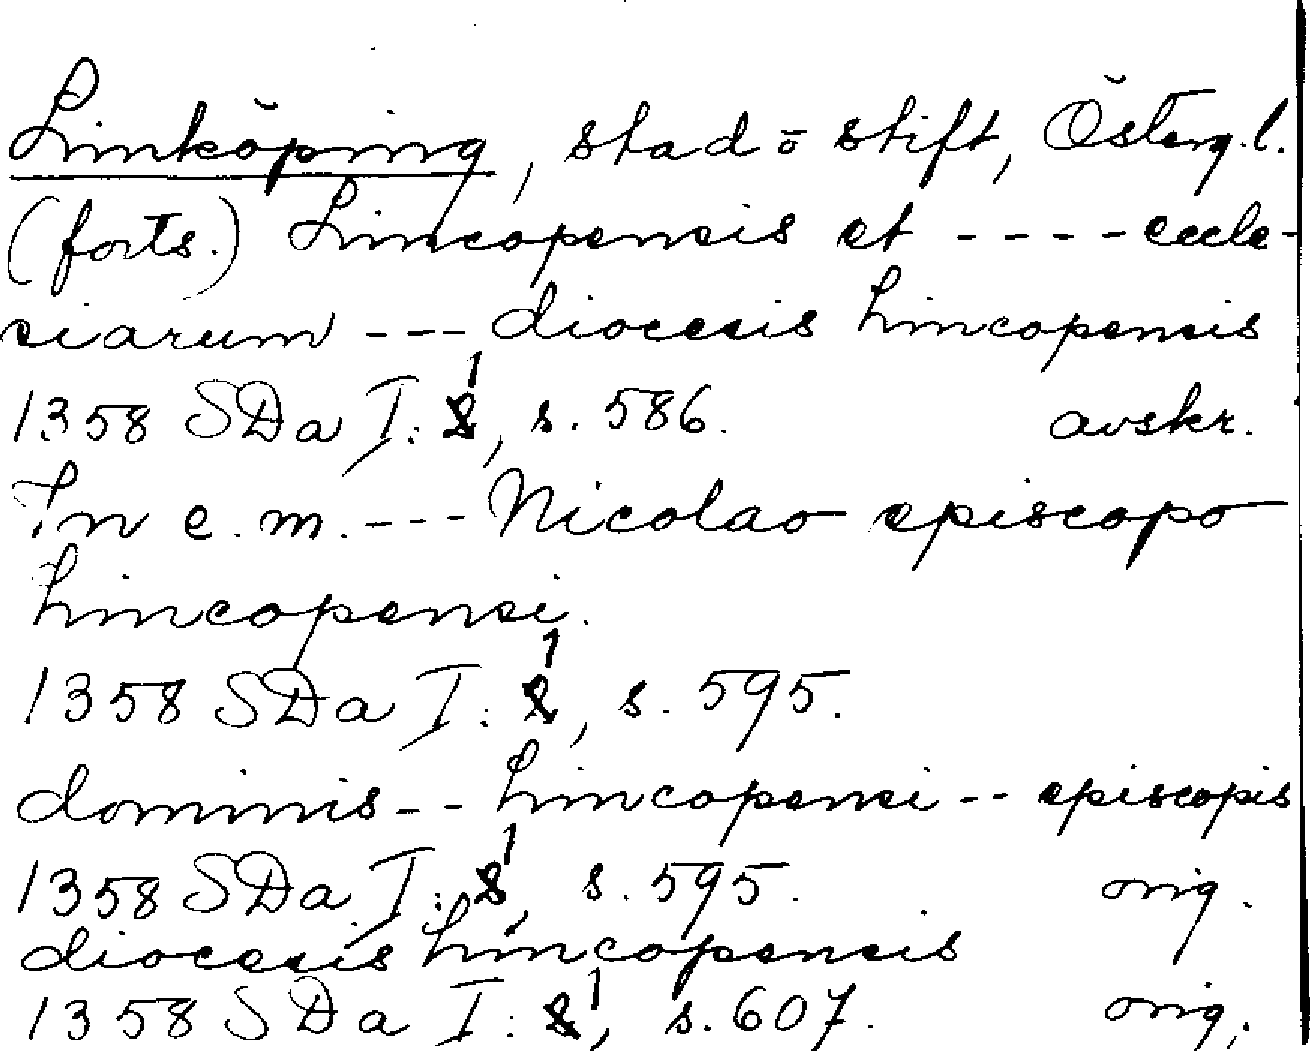 Linköping, stad o stift, Österg.l.
(forts.) Lincopensis et ---- eccle-
siarum --- diocesis Lincopensis
1358 SDa I: 1, s. 586. avskr.
In e. m. --- Nicolao episcopo
Lincopensi.
1358 SDa I: 1, s. 595.
dominis -- Lincopensi -- episcopis
1358 SDa I: 1, s. 595. orig.
diocesis Lincopensis
1358 SDa I: 1, s. 607. orig.